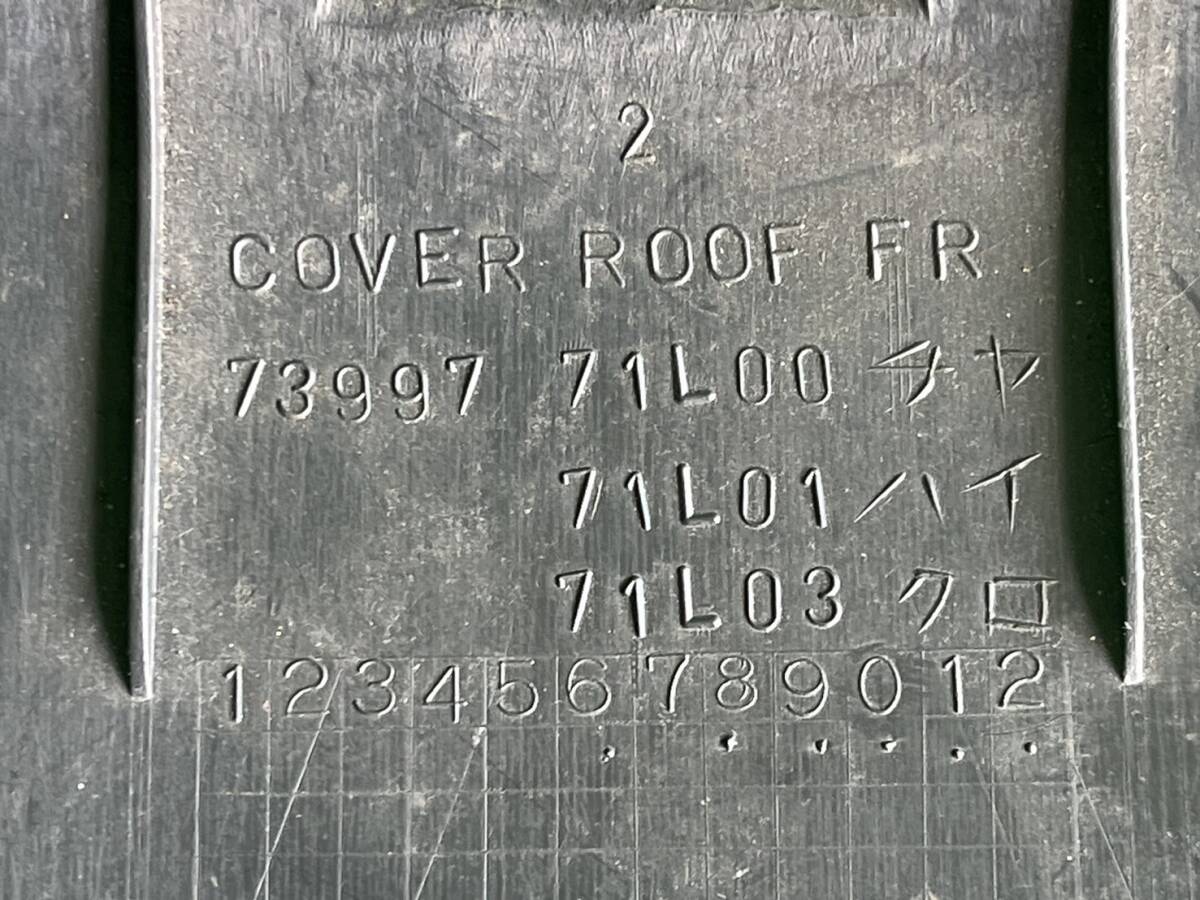 2
COVER ROOF FR
73997 71L00 チヤ
71L01 ハイ
71L03 クロ
1 2 3 4 5 6 7 8 9 0 1 2